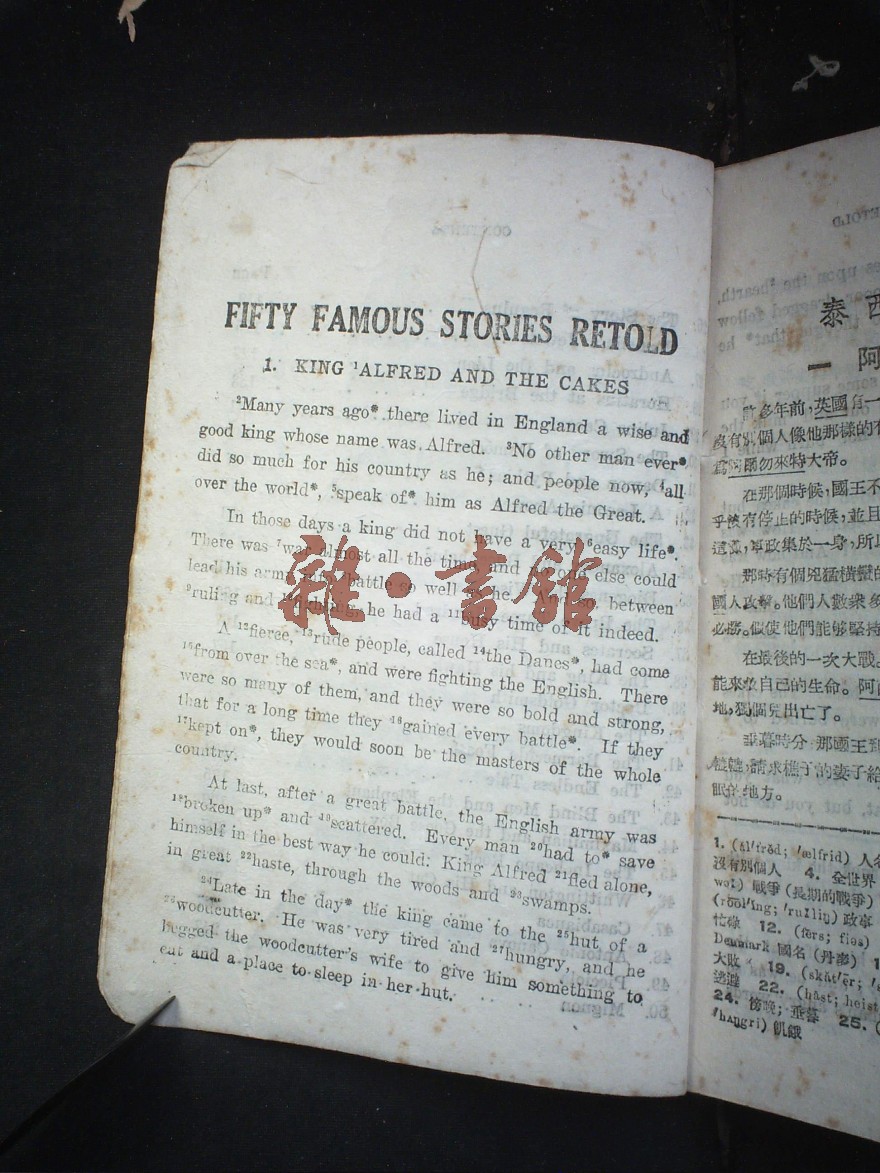 FIFTY FAMOUS STORIES RETOLD
1. KING ¹ALFRED AND THE CAKES
²Many years ago* there lived in England a wise and
good king whose name was Alfred. ³No other man ever*
did so much for his country as he; and people now, ⁴all
over the world*, ⁵speak of* him as Alfred the Great.
In those days a king did not have a very ⁶easy life*.
There was ⁷war almost all the time, and no one else could
lead his army into battle so well as he. And so, between
⁹ruling and fighting, he had a ¹¹busy time of it indeed.
A ¹²fierce, ¹³rude people, called ¹⁴the Danes*, had come
¹⁵from over the sea*, and were fighting the English. There
were so many of them, and they were so bold and strong,
that for a long time they ¹⁶gained every battle*. If they
¹⁷kept on*, they would soon be the masters of the whole
country.
At last, after a great battle, the English army was
¹⁸broken up* and ¹⁹scattered. Every man ²⁰had to* save
himself in the best way he could. King Alfred ²¹fled alone,
in great ²²haste, through the woods and ²³swamps.
²⁴Late in the day* the king came to the ²⁵hut of a
²⁶woodcutter. He was very tired and ²⁷hungry, and he
begged the woodcutter's wife to give him something to
eat and a place to sleep in her hut.
雜·書館
泰西
一 阿
許多年前,英國有一
沒有別個人像他那樣的有
爲阿爾勿來特大帝。
在那個時候,國王不
乎沒有停止的時候,並且
這羣,軍政集於一身,所以
那時有個兇猛橫蠻的
國人攻擊。他們人數衆多
必勝。假使他們能够堅持
在最後的一次大戰。
能來救自己的生命。阿
地,獨個兒出亡了。
垂暮時分,那國王到
,請求樵子的妻子給
眠的地方。
1. (ăl'frĕd; 'ælfrid) 人名
沒有別個人 4. 全世界
戰爭 (長期的戰爭)
(rōōl'ing; 'ru:liŋ) 政事
忙碌 12. (fērs; fiəs)
Denmark 國名 (丹麥)
大敗 19. (skăt'ẽr;
逃避 22. (hāst; heist
24. 傍晚; 垂暮 25. (
'hʌŋgri) 飢餓